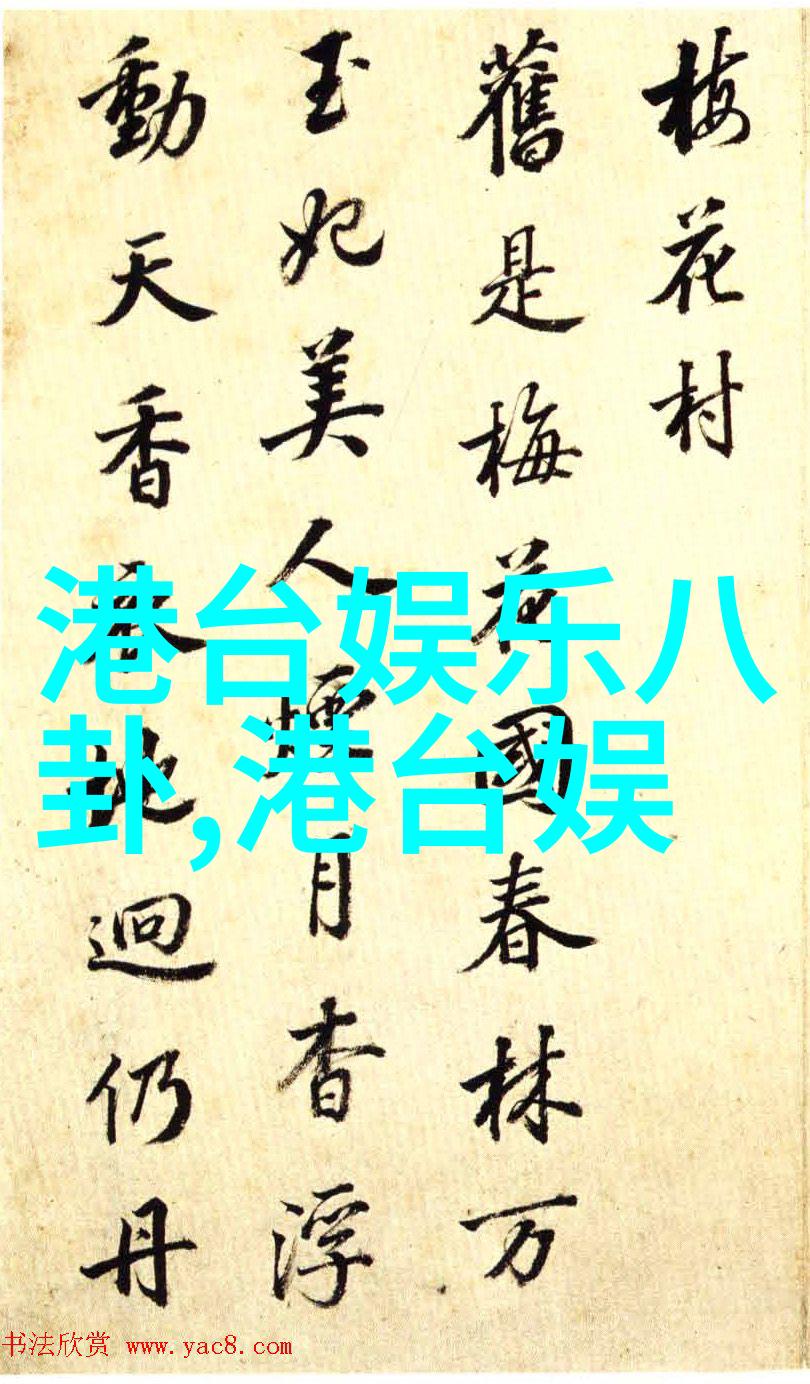 梅花村
舊是梅花國春林万
玉妃美人煙月杳浮
動天香衣地迥仍丹
港台娱乐八
卦,港台娱
书法欣赏 www.yac8.com